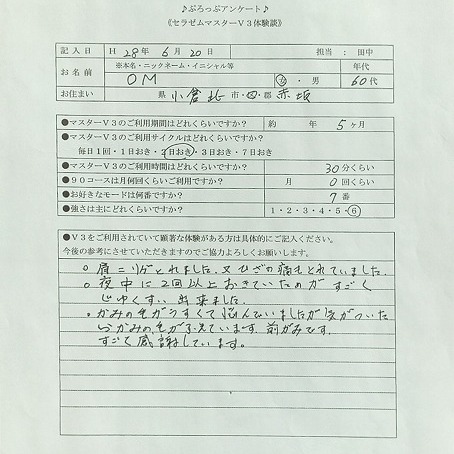 ♪ぷろっぷアンケート♪
≪セラゼムマスターV3体験談≫
記入日 H 28年 6月 20日 担当：田中
お名前 ※本名・ニックネーム・イニシャル等 年代
OM 女・男 60代
お住まい 県 小倉北 市・区・郡 赤坂
●マスターV3のご利用期間はどれくらいですか？ 約 年 5ヶ月
●マスターV3のご利用サイクルはどれくらいですか？
毎日1回・1日おき・2日おき・3日おき・7日おき
●マスターV3のご利用時間はどれくらいですか？ 30分くらい
●90コースは月何回くらいご利用ですか？ 月 0回くらい
●お好きなモードは何番ですか？ 7番
●強さは主にどれくらいですか？ 1・2・3・4・5・6
●V3をご利用されていて顕著な体験がある方は具体的にご記入ください。
今後の参考にさせていただきますのでご協力よろしくお願いします。
○ 肩こりがとれました。又ひざの痛もとれていました。
○ 夜中に2回以上おきていたのがすごく
じゅくすい出来ました。
○ かみの毛がうすくて悩んでいましたが気がついた
らかみの毛がふえています。前がみです。
すごく感謝しています。